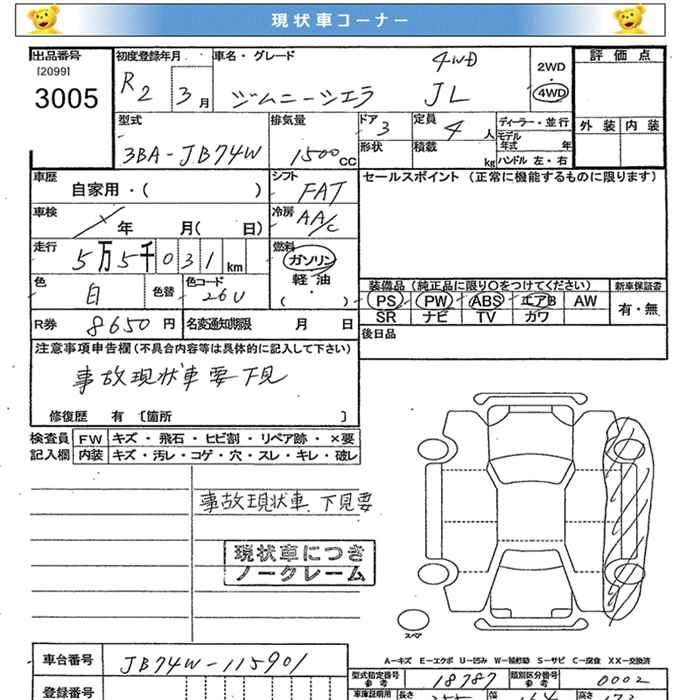 現状車コーナー
出品番号 初度登録年月 車名・グレード 評価点
[2099]
3005
R2 3月 ジムニーシエラ 4WD JL
2WD
・
4WD
型式 排気量 ドア 定員 ディーラー・並行 外装 内装
3BA-JB74W 1500cc 3 4人
モデル年式 年
形状 積載 kg ハンドル 左・右
車歴 シフト セールスポイント(正常に機能するものに限ります)
自家用・( ) FAT
車検 冷房
年 月( 日) AA/c
走行 燃料
5万5千031km ガソリン
・
軽油
・
( )
色 色替 色コード
白 26U
装備品(純正品に限り○をつけてください) 新車保証書
PS PW ABS エアB AW 有・無
SR ナビ TV カワ
R券 8650円 名変通知期限 月 日 後日品
注意事項申告欄(不具合内容等は具体的に記入して下さい)
事故現状車要下見
修復歴 有 〔箇所 〕
検査員 FW キズ・飛石・ヒビ割・リペア跡・×要
記入欄 内装 キズ・汚レ・コゲ・穴・スレ・キレ・破レ
事故現状車、下見要
現状車につき
ノークレーム
スペア
A-キズ E-エクボ U-凹み W-補修跡 S-サビ C-腐食 XX-交換済
車台番号 JB74W-115901
型式指定番号 参考 18787 類別区分番号 参考 0002
登録番号
車庫証明用 長さ 355 幅 164 高さ 173